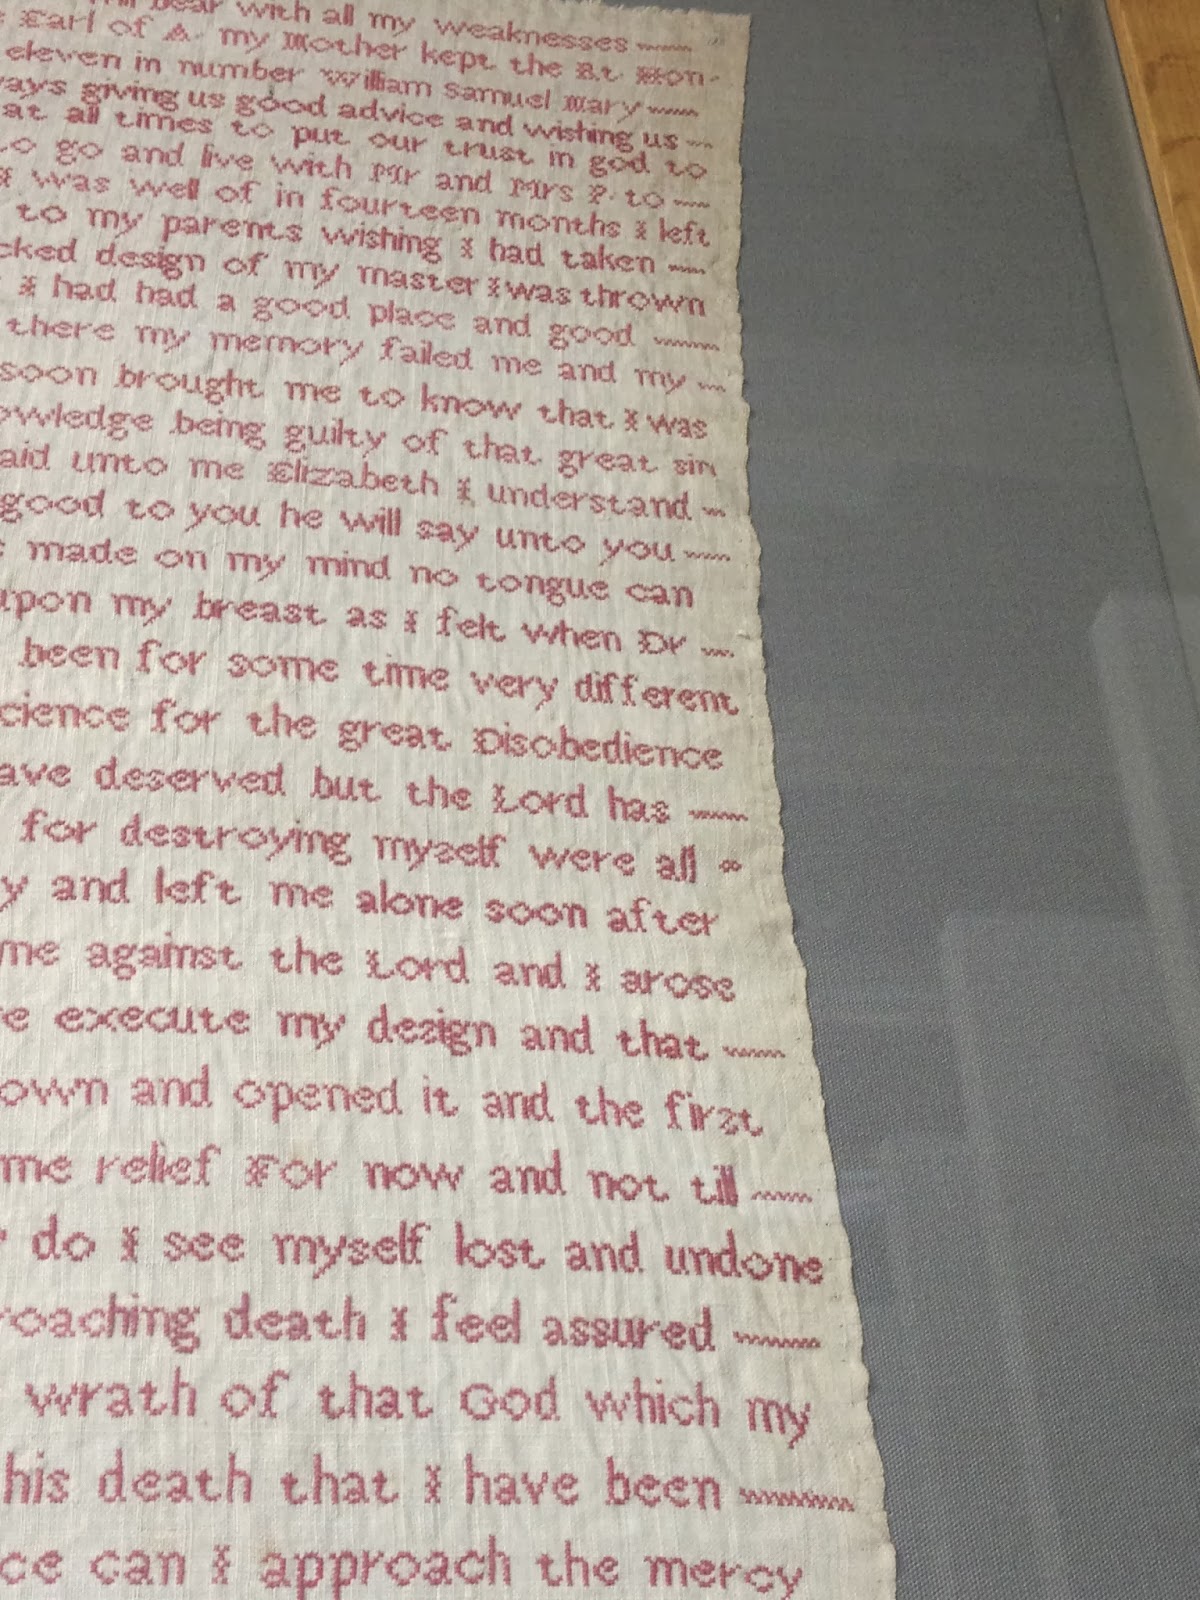 bear with all my weaknesses
Earl of A. my Mother kept the At Mon-
eleven in number William Samuel Mary
ays giving us good advice and wishing us
at all times to put our trust in god to
to go and live with Mr and Mrs P. to
I was well of in fourteen months I left
to my parents wishing I had taken
cked design of my master I was thrown
I had had a good place and good
there my memory failed me and my
soon brought me to know that I was
owledge being guilty of that great sin
aid unto me Elizabeth I understand
good to you he will say unto you
made on my mind no tongue can
upon my breast as I felt when Dr
been for some time very different
cience for the great Disobedience
ave deserved but the Lord has
for destroying myself were all
y and left me alone soon after
me against the Lord and I arose
e execute my design and that
own and opened it and the first
me relief For now and not till
do I see myself lost and undone
roaching death I feel assured
wrath of that God which my
his death that I have been
ce can I approach the mercy